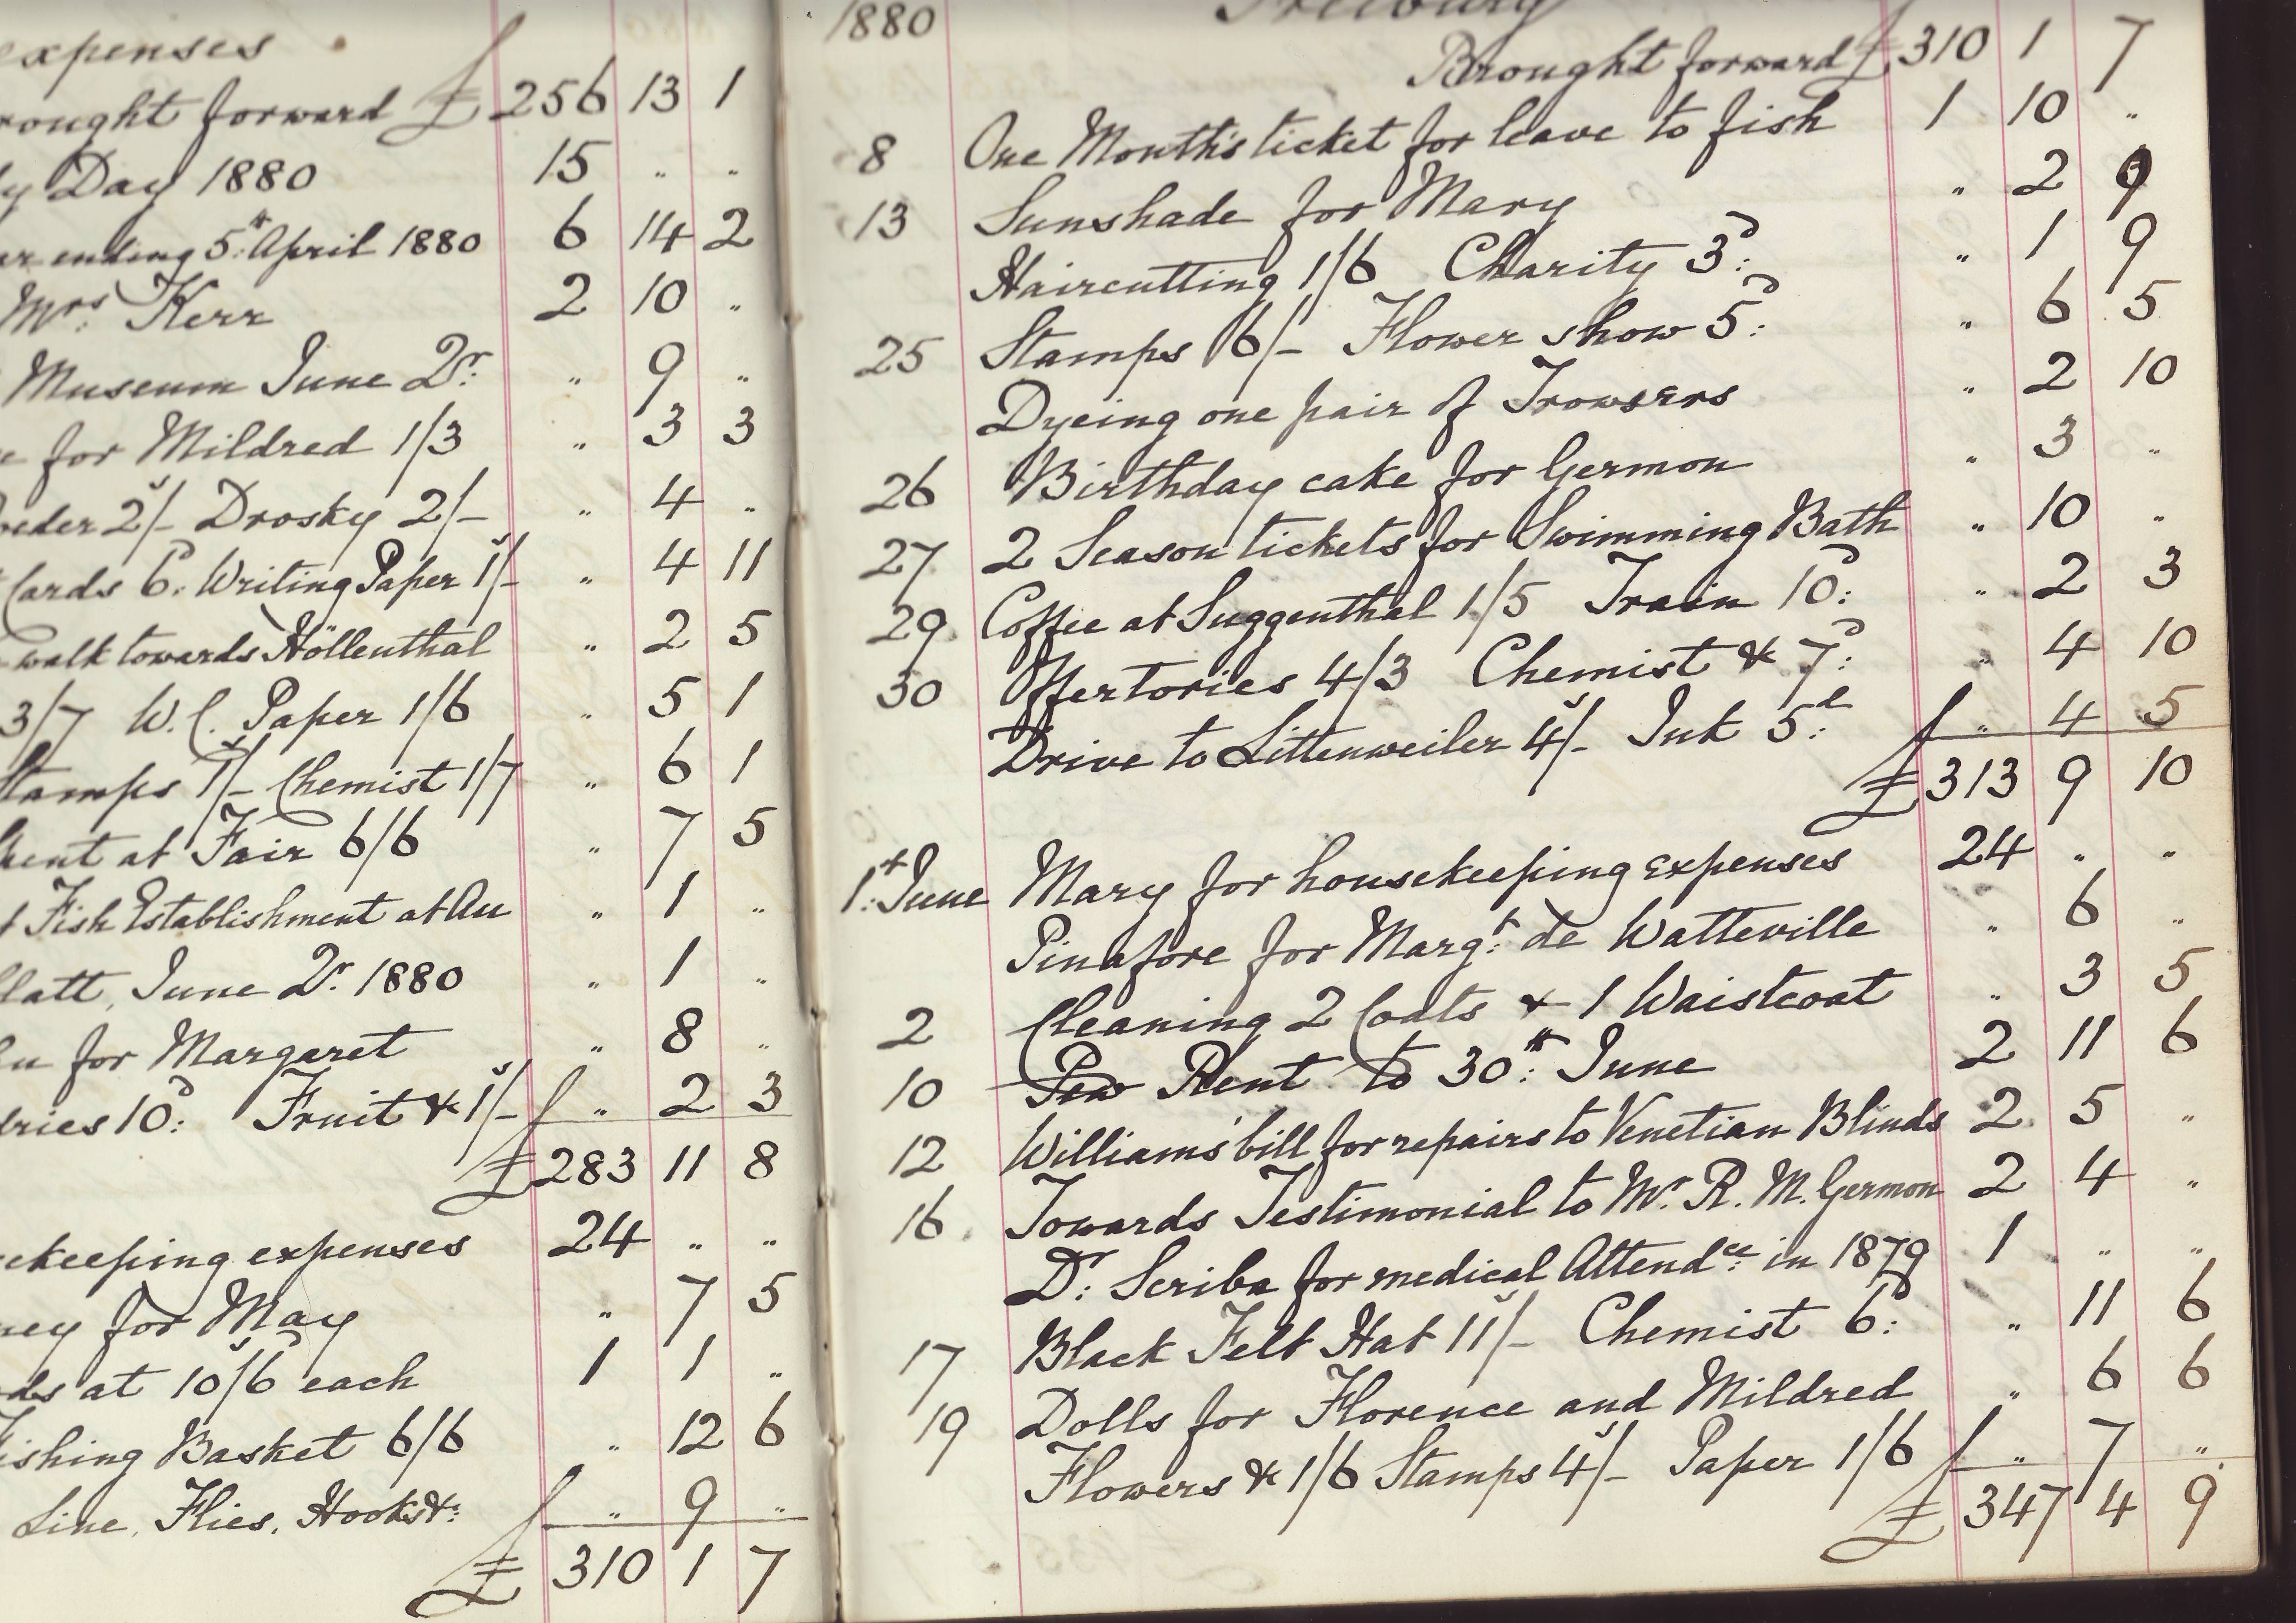 expenses
rought forward £ 256 13 1
y Day 1880 15 " "
ar ending 5th April 1880 6 14 2
Mrs: Kerr 2 10 "
Museum June Qr: " 9 "
e for Mildred 1/3 " 3 3
2s/- Drosky 2/- " 4 "
Cards 6d: Writing Paper 1s/- " 4 11
walk towards Höllenthal " 2 5
3/7 W.C. Paper 1/6 " 5 1
Stamps 1s/- Chemist 1/7 " 6 1
at Fair 6/6 " 7 5
Fish Establishment at Au " 1 "
latt, June Qr. 1880 " 1 "
for Margaret " 8 "
dries 10d: Fruit &c 1s/- £ " 2 3
£ 283 11 8
ekeeping expenses 24 " "
ney for May " 7 5
ds at 10s/6d each 1 1 "
ishing Basket 6/6 " 12 6
Line, Flies, Hooks &c: £ " 9 "
£ 310 1 7
1880 Freiburg
Brought forward £ 310 1 7
8 One Month's ticket for leave to fish 1 10 "
13 Sunshade for Mary " 2 9
Haircutting 1/6 Charity 3d: " 1 9
25 Stamps 6/- Flower show 5d: " 6 5
Dyeing one pair of Trowsers " 2 10
26 Birthday cake for Germon " 3 "
27 2 Season tickets for Swimming Bath " 10 "
29 Coffee at Suggenthal 1/5 Train 10d: " 2 3
30 Offertories 4/3 Chemist &c 7d: " 4 10
Drive to Littenweiler 4s/- Ink 5d: £ " 4 5
£ 313 9 10
1st: June Mary for housekeeping expenses 24 " "
Pinafore for Margt: de Watteville " 6 "
2 Cleaning 2 Coats & 1 Waistcoat " 3 5
10 Pew Rent to 30th: June 2 11 6
12 Williams' bill for repairs to Venetian Blinds 2 5 "
16 Towards Testimonial to Mr. R. M. Germon 2 4 "
Dr: Scriba for medical Attendce: in 1879 1 " "
17 Black Felt Hat 11s/- Chemist 6d: " 11 6
19 Dolls for Florence and Mildred " 6 6
Flowers &c 1/6 Stamps 4s/- Paper 1/6 £ " 7 "
£ 347 4 9